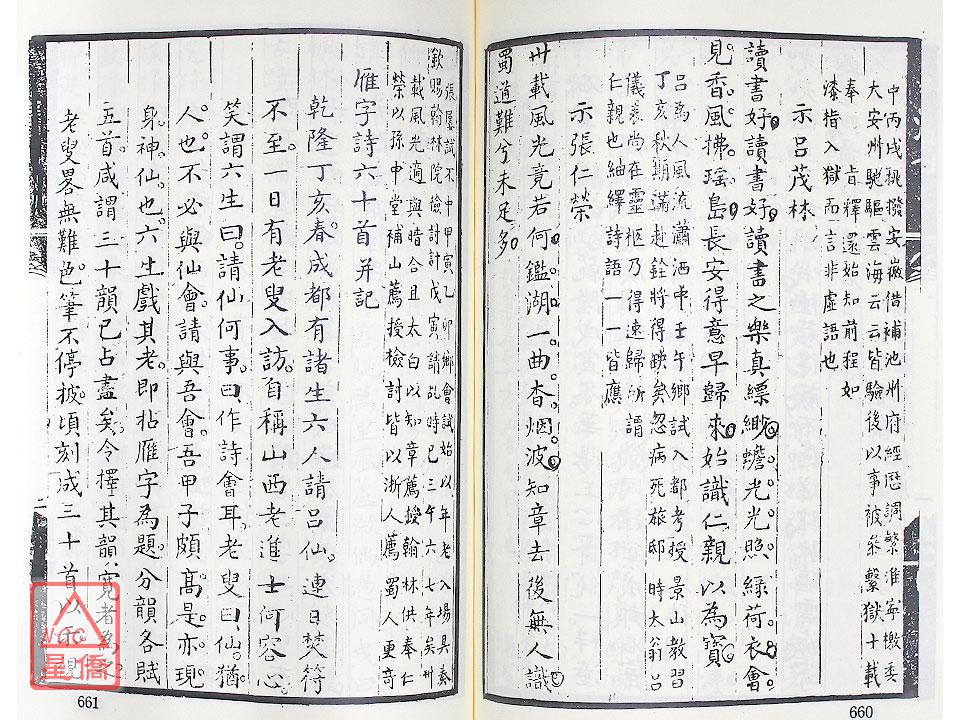 中丙戌挑撥安徽借補池州府經歷調繁淮寧檄委
大安州馳驅雲海云云皆驗後以事被參繫獄十載
奉　旨釋還始知前程如
漆指入獄而言非虛語也
示呂茂林
讀書好讀書好讀書之樂真縹緲蟾光光照綠荷衣會
見香風拂瑤島長安得意早歸來始識仁親以為寶
呂為人風流瀟洒中壬午鄉試入都考授景山教習
丁亥秋期滿赴銓將得缺矣忽病死旅邸時太翁呂
儀羲尚在靈柩乃得速歸所謂
仁親也紬繹詩語一一皆應
示張仁榮
卅載風光竟若何鑑湖一曲杳烟波知章去後無人識
蜀道難兮未足多
660
張屢試不中甲寅乙卯鄉會試始以年老入場具奏
欽賜翰林院檢討計戊寅請乩時已三午六七年矣卅
載風光適與暗合且太白以知章薦授翰林供奉仁
榮以孫中堂補山薦授檢討皆以浙人薦蜀人更奇
雁字詩六十首并記
乾隆丁亥春成都有諸生六人請呂仙連日焚符
不至一日有老叟入訪自稱山西老進士何容心
笑謂六生曰請仙何事曰作詩會耳老叟曰仙猶
人也不必與仙會請與吾會吾甲子頗高是亦現
身神仙也六生戲其老即拈雁字為題分韻各賦
五首咸謂三十韻已占盡矣令擇其韻寬者為之
老叟畧無難色筆不停披頃刻成三十首以示見
661
星僑